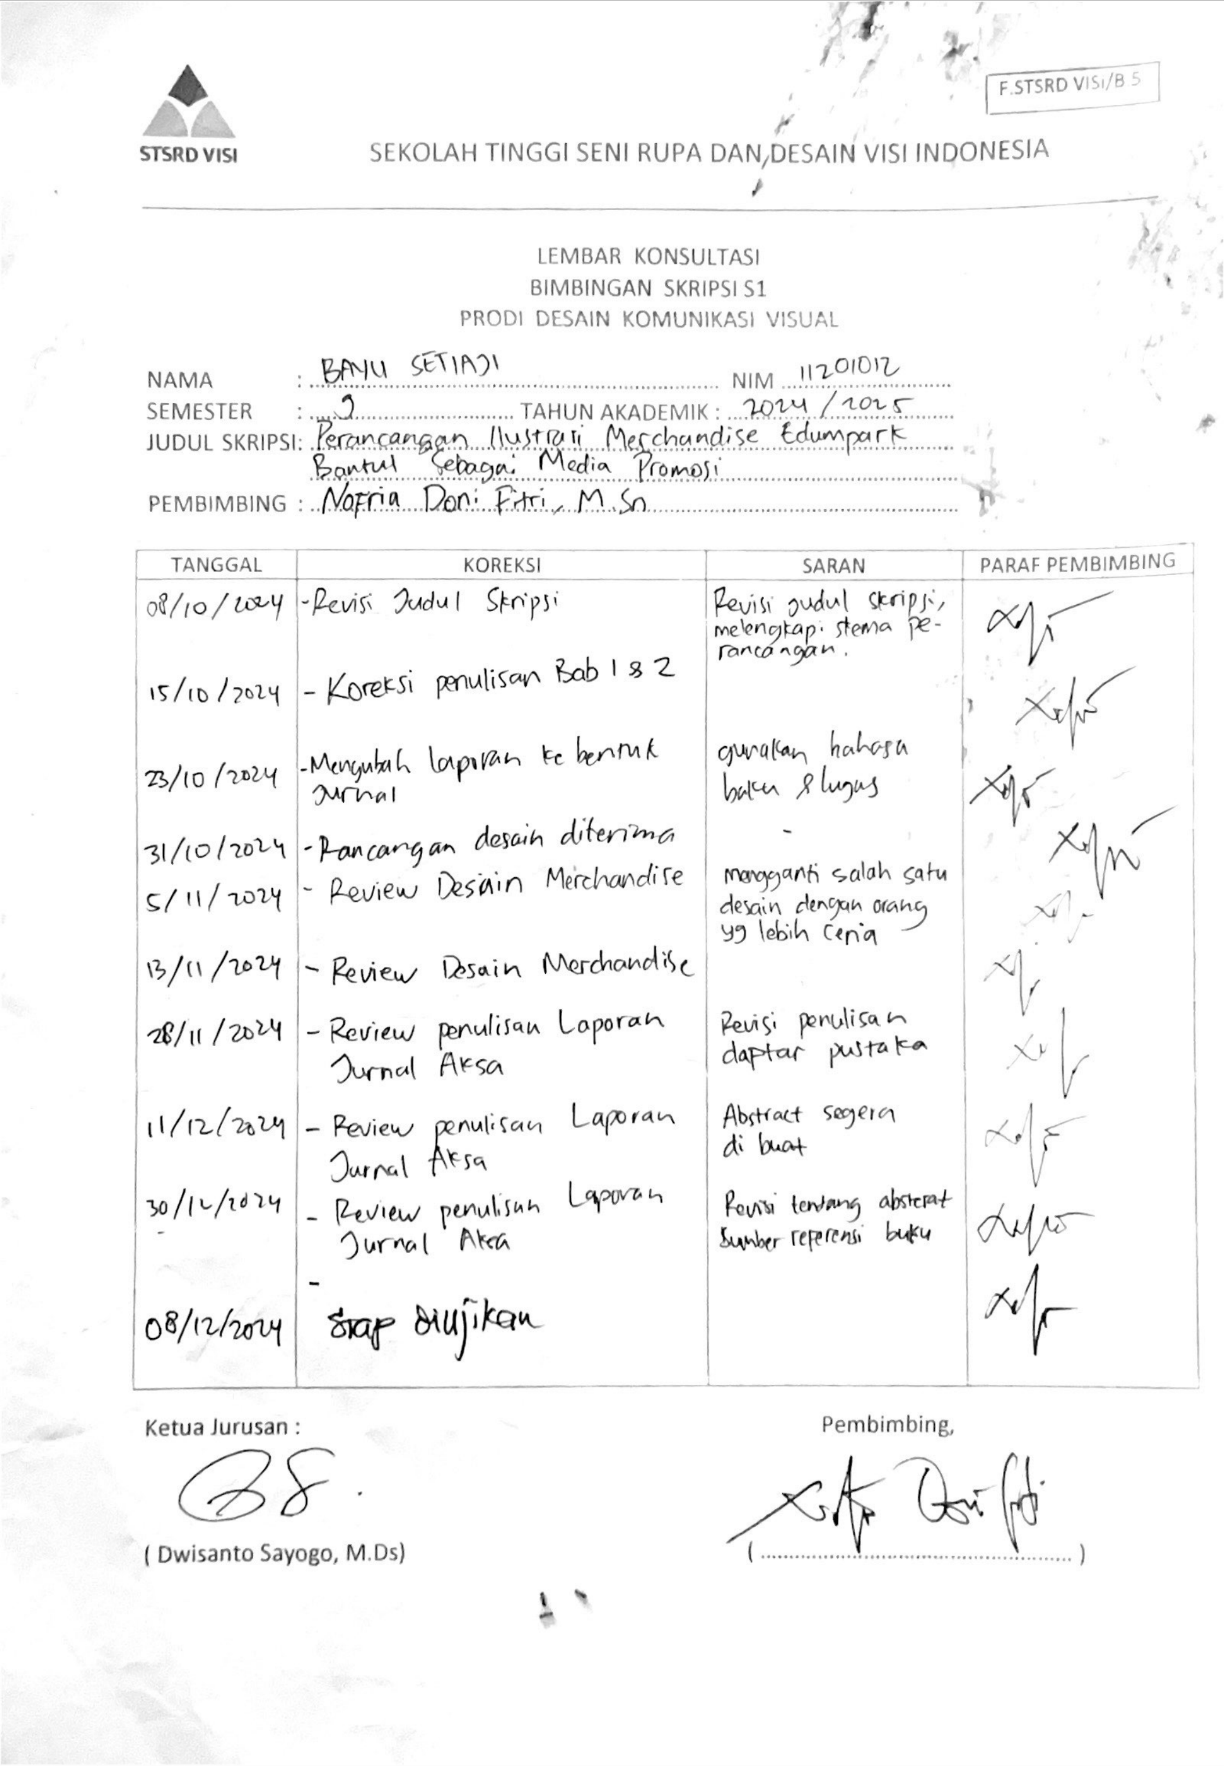 F.STSRD VISI/B 5
STSRD VISI
SEKOLAH TINGGI SENI RUPA DAN DESAIN VISI INDONESIA
LEMBAR KONSULTASI
BIMBINGAN SKRIPSI S1
PRODI DESAIN KOMUNIKASI VISUAL
NAMA : BAYU SETIAJI NIM 11201012
SEMESTER : 9 TAHUN AKADEMIK : 2024/2025
JUDUL SKRIPSI: Perancangan Ilustrasi Merchandise Edumpark
Bantul Sebagai Media Promosi
PEMBIMBING : Nofria Doni Fitri, M.Sn
TANGGAL KOREKSI SARAN PARAF PEMBIMBING
08/10/2024 -Revisi Judul Skripsi Revisi judul skripsi,
melengkapi skema pe-
rancangan.
15/10/2024 - Koreksi penulisan Bab 1 & 2
23/10/2024 -Mengubah laporan ke bentuk gunakan bahasa
Jurnal baku & lugas
31/10/2024 -Rancangan desain diterima -
5/11/2024 - Review Desain Merchandise mengganti salah satu
desain dengan orang
yg lebih ceria
13/11/2024 - Review Desain Merchandise
28/11/2024 - Review penulisan Laporan Revisi penulisan
Jurnal Aksa daftar pustaka
11/12/2024 - Review penulisan Laporan Abstract segera
Jurnal Aksa di buat
30/12/2024 - Review penulisan Laporan Revisi tentang abstrat
Jurnal Aksa Sumber referensi buku
-
08/12/2024 Siap Diujikan
Ketua Jurusan : Pembimbing,
( Dwisanto Sayogo, M.Ds) (.......................................................)